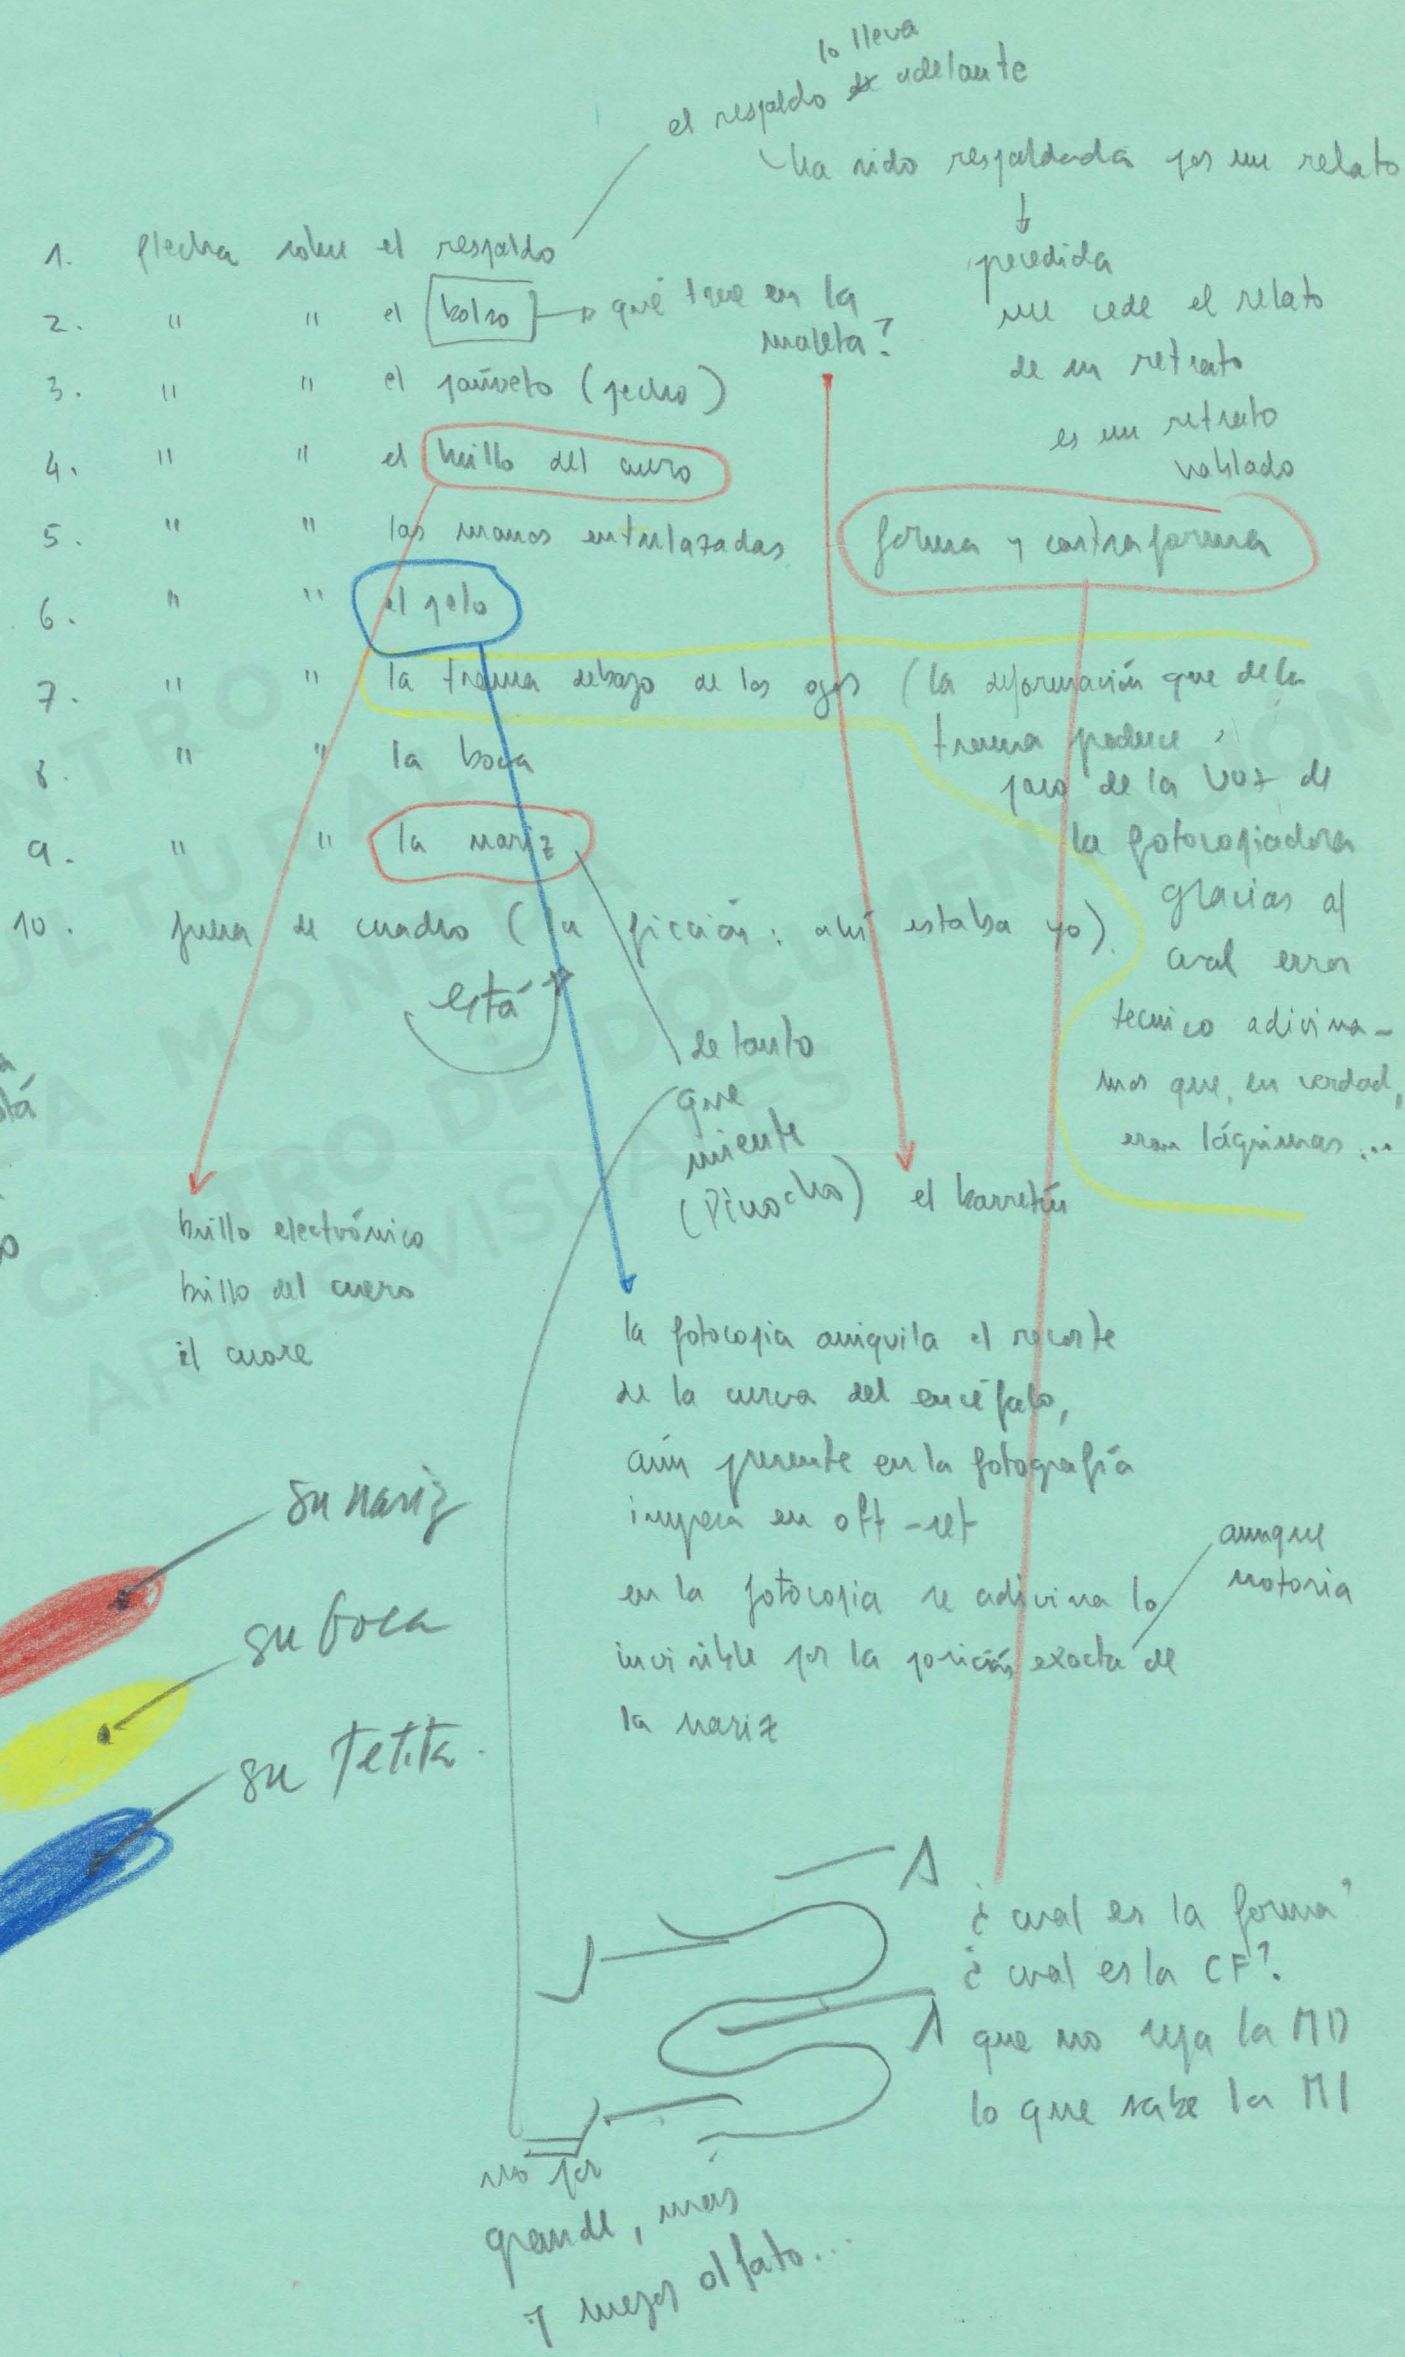 lo lleva
el respaldo adelante
ha sido respaldada por un relato
1. flecha sobre el respaldo
precedida
2. " " el bolso → qué trae en la
maleta?
me cede el relato
de un retrato
es un retrato
hablado
3. " " el pañuelo (pecho)
4. " " el brillo del cuero
5. " " las manos entrelazadas
forma y contraforma
6. " " el pelo
7. " " la trama debajo de los ojos (la deformación que de la
trama produce,
paso de la voz de
la fotocopiadora
gracias al
cual error
tecnico adivina-
mos que, en verdad,
eran lágrimas...
8. " " la boca
9. " " la nariz
10. fuera de cuadro (la ficción: ahí estaba yo)
está
de tanto
que
miente
(Pinocho)
el barretín
brillo electrónico
brillo del cuero
il cuore
la fotocopia aniquila el recorte
de la curva del encéfalo,
aún presente en la fotografía
impresa en off-set
en la fotocopia se adivina lo
invisible por la posición exacta de
la nariz
aunque
notoria
su nariz
su boca
su Tetita.
¿cual es la forma?
¿cual es la CF?
que no sepa la MD
lo que sabe la MI
no por
grande, más
y mejor olfato...
CENTRO
CULTURAL
LA MONEDA
CENTRO DE DOCUMENTACIÓN
ARTES VISUALES